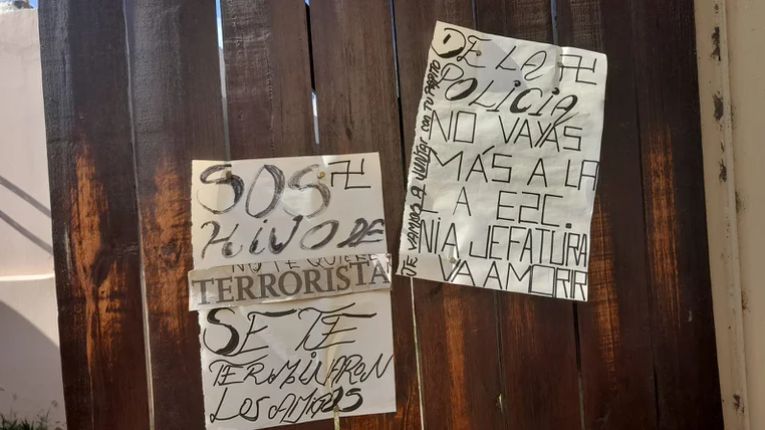 SOS 卐
HIJO DE
NO TE QUIERE
TERRORISTA
SE TE
TERMINARON
LOS AMIGOS
DE LA 卐
POLICIA
NO VAYAS
MÁS A LA
LA E2C.
NI A JEFATURA
VA A MORIR
TE VAMOS A JUNTAR CON TU PAPITO